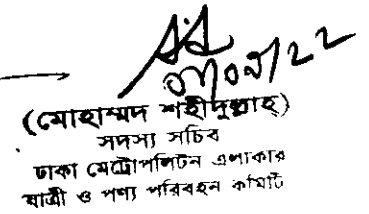 (মোহাম্মদ শহীদুল্লাহ্)
সদস্য সচিব
ঢাকা মেট্রোপলিটন এলাকার
যাত্রী ও পণ্য পরিবহন কমিটি